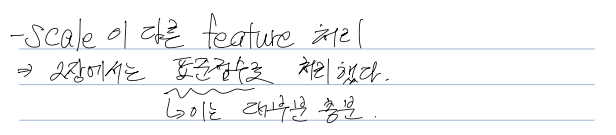 -scale이 다른 feature 처리
⇒ 2장에서는 표준점수로 처리했다.
↳ 이는 대부분 충분.